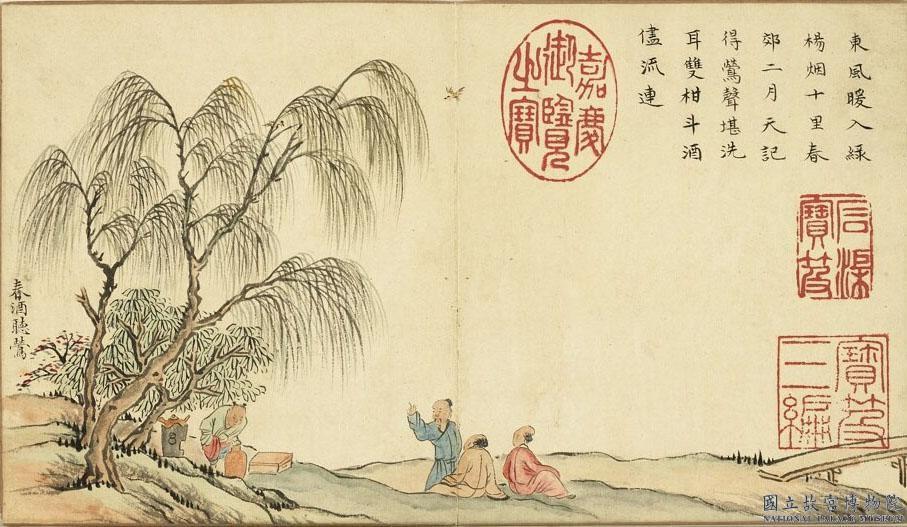 東風暖入綠
楊烟十里春
郊二月天記
得鶯聲堪洗
耳雙柑斗酒
儘流連
嘉慶
御覽
之寶
石渠
寶笈
寶笈
三編
春酒聽鶯
國立故宮博物院
NATIONAL PALACE MUSEUM